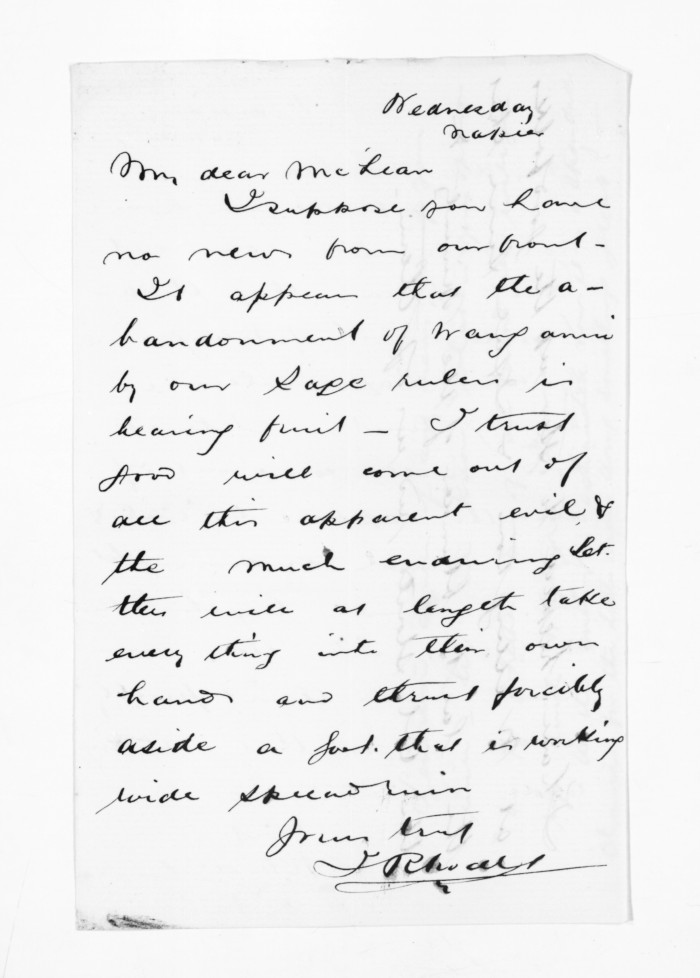 Wednesday
Napier
My dear McLean
I suppose you have
no news from our front -
It appears that the a-
bandonment of Wanganui
by our Sage rulers is
bearing fruit - I trust
good will come out of
all this apparent evil &
the much enduring Set.
tlers will at length take
every thing into their own
hands and thrust forcibly
aside a Govt. that is working
wide spread ruin
Yours truly
J Rhodes